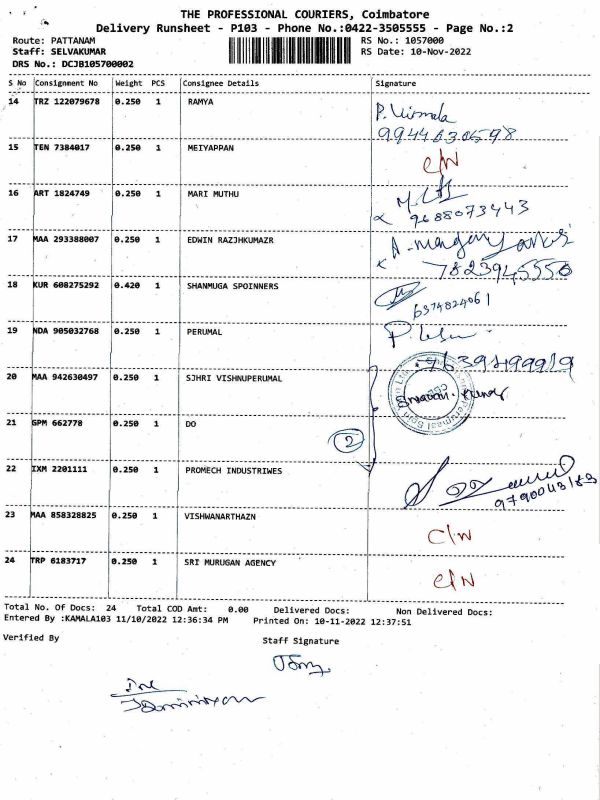 THE PROFESSIONAL COURIERS, Coimbatore
Delivery Runsheet - P103 - Phone No.:0422-3505555 - Page No.:2
Route: PATTANAM
RS No.: 1057000
Staff: SELVAKUMAR
RS Date: 10-Nov-2022
DRS No.: DCJB105700002
S No Consignment No Weight PCS Consignee Details Signature
14 TRZ 122079678 0.250 1 RAMYA
P. Vismala
9944630598
15 TEN 7384017 0.250 1 MEIYAPPAN
C/N
16 ART 1824749 0.250 1 MARI MUTHU
9688073443
17 MAA 293388007 0.250 1 EDWIN RAZJHKUMAZR
7823945550
18 KUR 608275292 0.420 1 SHANMUGA SPOINNERS
6374824061
19 NDA 905032768 0.250 1 PERUMAL
9639499919
20 MAA 942630497 0.250 1 SJHRI VISHNUPERUMAL
21 GPM 662778 0.250 1 DO
2
22 IXM 2201111 0.250 1 PROMECH INDUSTRIWES
9790043183
23 MAA 858328825 0.250 1 VISHWANARTHAZN
C/N
24 TRP 6183717 0.250 1 SRI MURUGAN AGENCY
C/N
Total No. Of Docs: 24 Total COD Amt: 0.00 Delivered Docs: Non Delivered Docs:
Entered By :KAMALA103 11/10/2022 12:36:34 PM Printed On: 10-11-2022 12:37:51
Verified By
Staff Signature